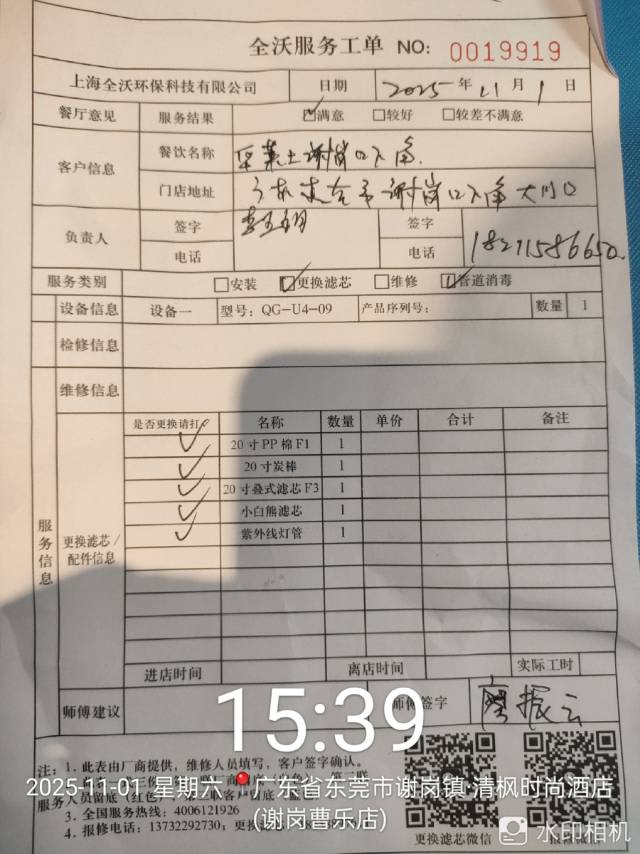 全沃服务工单 NO: 0019919
上海全沃环保科技有限公司 日期 2025年11月1日
餐厅意见 服务结果 ☑满意 □较好 □较差不满意
客户信息 餐饮名称 谢岗口入角
门店地址 广东东省市谢岗口入角大川口
负责人 签字 签字
电话 电话 18271586650
服务类别 □安装 ☑更换滤芯 □维修 ☑管道消毒
设备信息 设备一 型号: QG-U4-09 产品序列号: 数量 1
检修信息
维修信息
服务信息
更换滤芯/配件信息
是否更换请打✓ 名称 数量 单价 合计 备注
✓ 20寸PP棉F1 1
✓ 20寸炭棒 1
✓ 20寸叠式滤芯F3 1
✓ 小白熊滤芯 1
✓ 紫外线灯管 1
进店时间 离店时间 实际工时
师傅建议 师傅签字 廖振云
15:39
注: 1. 此表由厂商提供, 维修人员填写, 客户签字确认。
2025-11-01 星期六 广东省东莞市谢岗镇·清枫时尚酒店
(谢岗曹乐店)
3. 全国服务热线: 4006121926
4. 报修电话: 13732292730, 更换
更换滤芯微信
水印相机